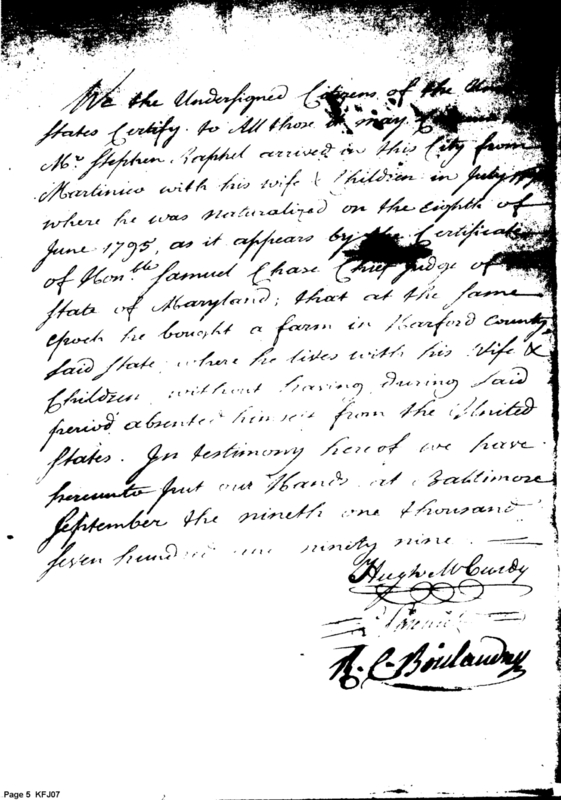 We the Undersigned Citizens of the
States Certify to All those it may
Mr. Stephen Raphel arrived in this City from
Martinico with his wife & Children in July
where he was naturalized on the eighth of
June 1795, as it appears by the Certificate
of Honble Samuel Chase Chief Judge of
State of Maryland; that at the same
epoch he bought a farm in Harford County,
said State, where he lives with his Wife &
Children, without having during said
period absented himself from the United
States. In testimony hereof we have
hereunto put our Hands at Baltimore
September the nineth one thousand
seven hundred ninety nine.
Hugh McCurdy
Page 5 KFJ07